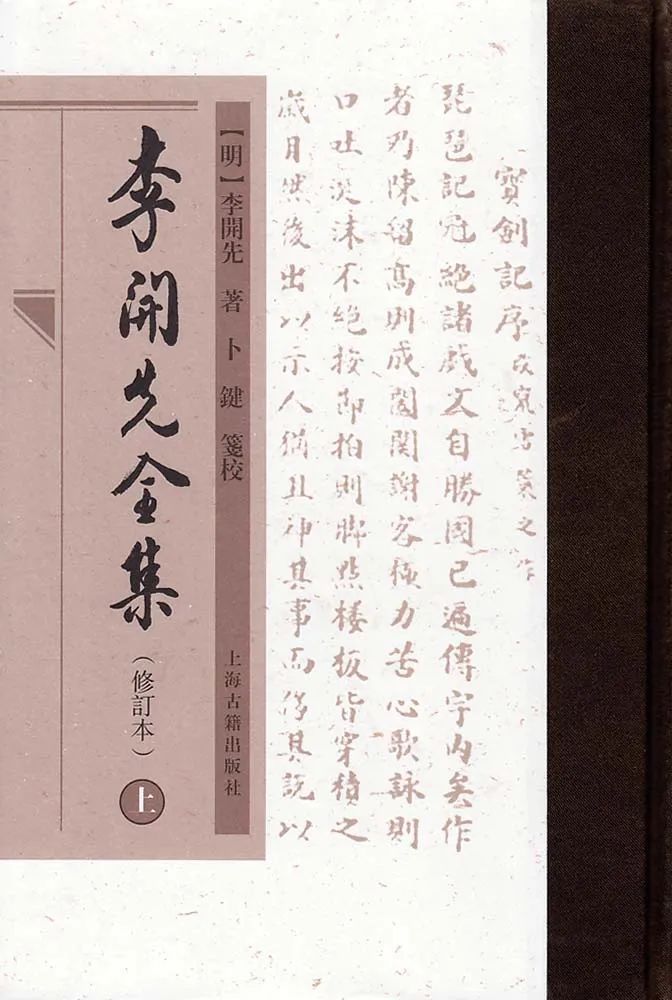 寶劍記序
琵琶記冠絕諸戲文自勝國已遍傳宇內矣作
者乃陳留高則成闔關謝客極力苦心歌詠則
口吐涎沫不絕按節拍則脚點樓板皆穿積之
歲月然後出以示人猶且神其事而侈其說以
【明】李開先 著 卜鍵 箋校
上海古籍出版社
李開先全集
(修訂本)
上